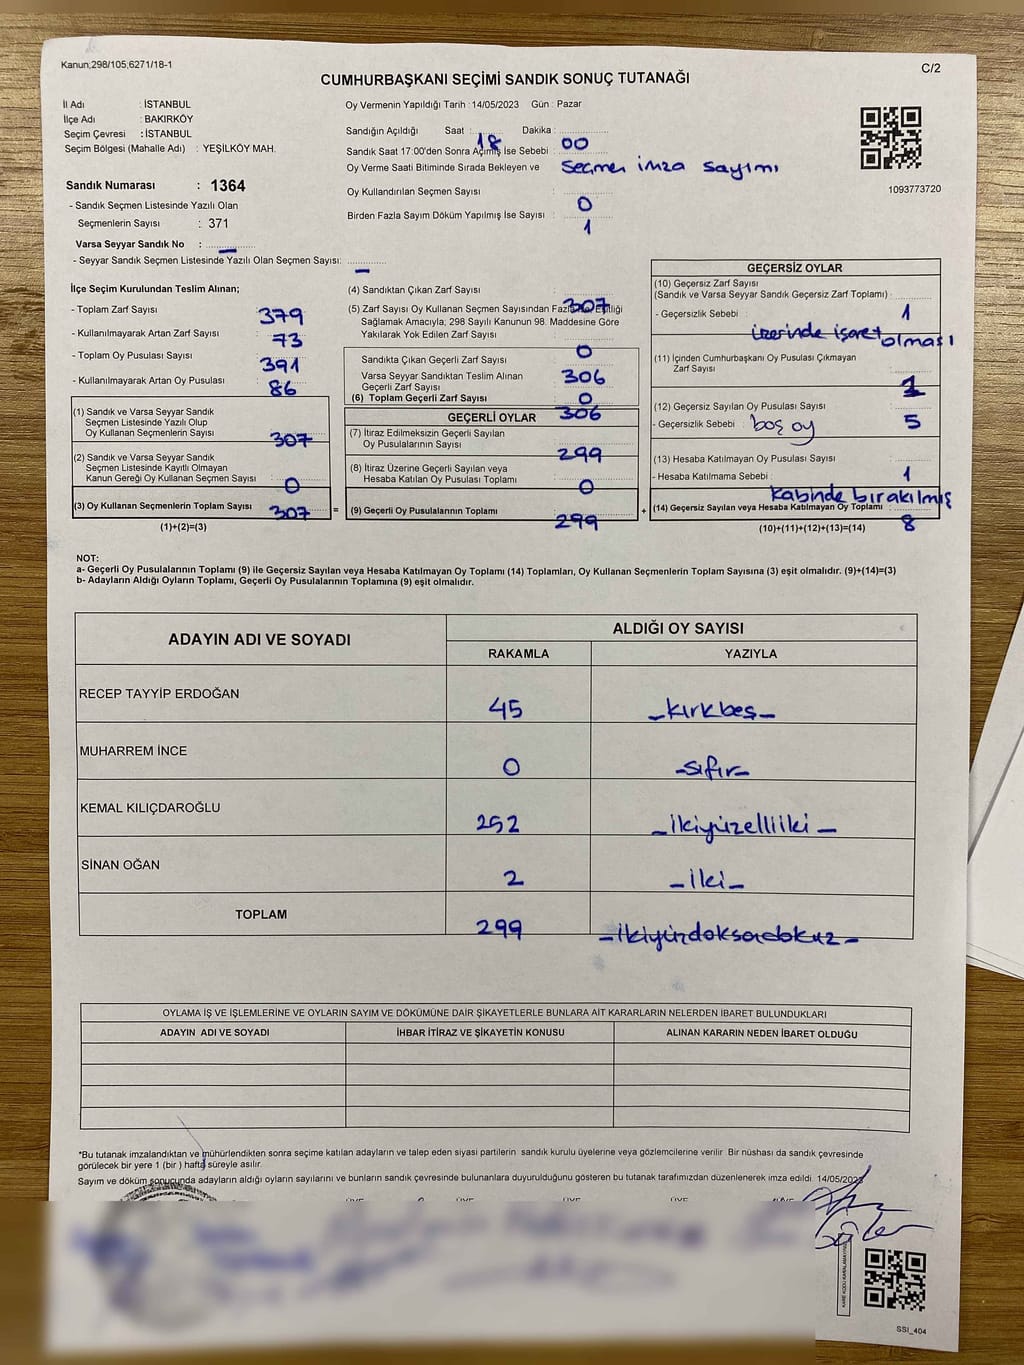 Kanun;298/105;6271/18-1
C/2
CUMHURBAŞKANI SEÇİMİ SANDIK SONUÇ TUTANAĞI
İl Adı : İSTANBUL
İlçe Adı : BAKIRKÖY
Seçim Çevresi : İSTANBUL
Seçim Bölgesi (Mahalle Adı) : YEŞİLKÖY MAH.
Sandık Numarası : 1364
- Sandık Seçmen Listesinde Yazılı Olan
Seçmenlerin Sayısı : 371
Varsa Seyyar Sandık No : –
- Seyyar Sandık Seçmen Listesinde Yazılı Olan Seçmen Sayısı: –
Oy Vermenin Yapıldığı Tarih : 14/05/2023 Gün : Pazar
Sandığın Açıldığı Saat : 18 Dakika : 00
Sandık Saat 17:00'den Sonra Açılmış İse Sebebi : Seçmen imza sayımı
Oy Verme Saati Bitiminde Sırada Bekleyen ve
Oy Kullandırılan Seçmen Sayısı : 0
Birden Fazla Sayım Döküm Yapılmış İse Sayısı : 1
1093773720
İlçe Seçim Kurulundan Teslim Alınan;
- Toplam Zarf Sayısı : 379
- Kullanılmayarak Artan Zarf Sayısı : 73
- Toplam Oy Pusulası Sayısı : 391
- Kullanılmayarak Artan Oy Pusulası : 86
(1) Sandık ve Varsa Seyyar Sandık
Seçmen Listesinde Yazılı Olup
Oy Kullanan Seçmenlerin Sayısı : 307
(2) Sandık ve Varsa Seyyar Sandık
Seçmen Listesinde Kayıtlı Olmayan
Kanun Gereği Oy Kullanan Seçmen Sayısı : 0
(3) Oy Kullanan Seçmenlerin Toplam Sayısı : 307 =
(1)+(2)=(3)
(4) Sandıktan Çıkan Zarf Sayısı : 307
(5) Zarf Sayısı Oy Kullanan Seçmen Sayısından Fazla İse, Eşitliği
Sağlamak Amacıyla; 298 Sayılı Kanunun 98. Maddesine Göre
Yakılarak Yok Edilen Zarf Sayısı : 0
Sandıkta Çıkan Geçerli Zarf Sayısı : 306
Varsa Seyyar Sandıktan Teslim Alınan
Geçerli Zarf Sayısı : 0
(6) Toplam Geçerli Zarf Sayısı : 306
GEÇERLİ OYLAR
(7) İtiraz Edilmeksizin Geçerli Sayılan
Oy Pusulalarının Sayısı : 299
(8) İtiraz Üzerine Geçerli Sayılan veya
Hesaba Katılan Oy Pusulası Toplamı : 0
(9) Geçerli Oy Pusulalarının Toplamı : 299 +
GEÇERSİZ OYLAR
(10) Geçersiz Zarf Sayısı
(Sandık ve Varsa Seyyar Sandık Geçersiz Zarf Toplamı) : 1
- Geçersizlik Sebebi : üzerinde işaret olması
(11) İçinden Cumhurbaşkanı Oy Pusulası Çıkmayan
Zarf Sayısı : 1
(12) Geçersiz Sayılan Oy Pusulası Sayısı : 5
- Geçersizlik Sebebi : boş oy
(13) Hesaba Katılmayan Oy Pusulası Sayısı : 1
- Hesaba Katılmama Sebebi : Kabinde bırakılmış
(14) Geçersiz Sayılan veya Hesaba Katılmayan Oy Toplamı : 8
(10)+(11)+(12)+(13)=(14)
NOT:
a- Geçerli Oy Pusulalarının Toplamı (9) ile Geçersiz Sayılan veya Hesaba Katılmayan Oy Toplamı (14) Toplamları, Oy Kullanan Seçmenlerin Toplam Sayısına (3) eşit olmalıdır. (9)+(14)=(3)
b- Adayların Aldığı Oyların Toplamı, Geçerli Oy Pusulalarının Toplamına (9) eşit olmalıdır.
ADAYIN ADI VE SOYADI
ALDIĞI OY SAYISI
RAKAMLA YAZIYLA
RECEP TAYYİP ERDOĞAN 45 –kırkbeş–
MUHARREM İNCE 0 –sıfır–
KEMAL KILIÇDAROĞLU 252 –ikiyüzelliiki–
SİNAN OĞAN 2 –iki–
TOPLAM 299 –ikiyüzdoksandokuz–
OYLAMA İŞ VE İŞLEMLERİNE VE OYLARIN SAYIM VE DÖKÜMÜNE DAİR ŞİKAYETLERLE BUNLARA AİT KARARLARIN NELERDEN İBARET BULUNDUKLARI
ADAYIN ADI VE SOYADI İHBAR İTİRAZ VE ŞİKAYETİN KONUSU ALINAN KARARIN NEDEN İBARET OLDUĞU
*Bu tutanak imzalandıktan ve mühürlendikten sonra seçime katılan adayların ve talep eden siyasi partilerin sandık kurulu üyelerine veya gözlemcilerine verilir Bir nüshası da sandık çevresinde
görülecek bir yere 1 (bir ) hafta süreyle asılır.
Sayım ve döküm sonucunda adayların aldığı oyların sayılarını ve bunların sandık çevresinde bulunanlara duyurulduğunu gösteren bu tutanak tarafımızdan düzenlenerek imza edildi 14/05/2023
SSI_404